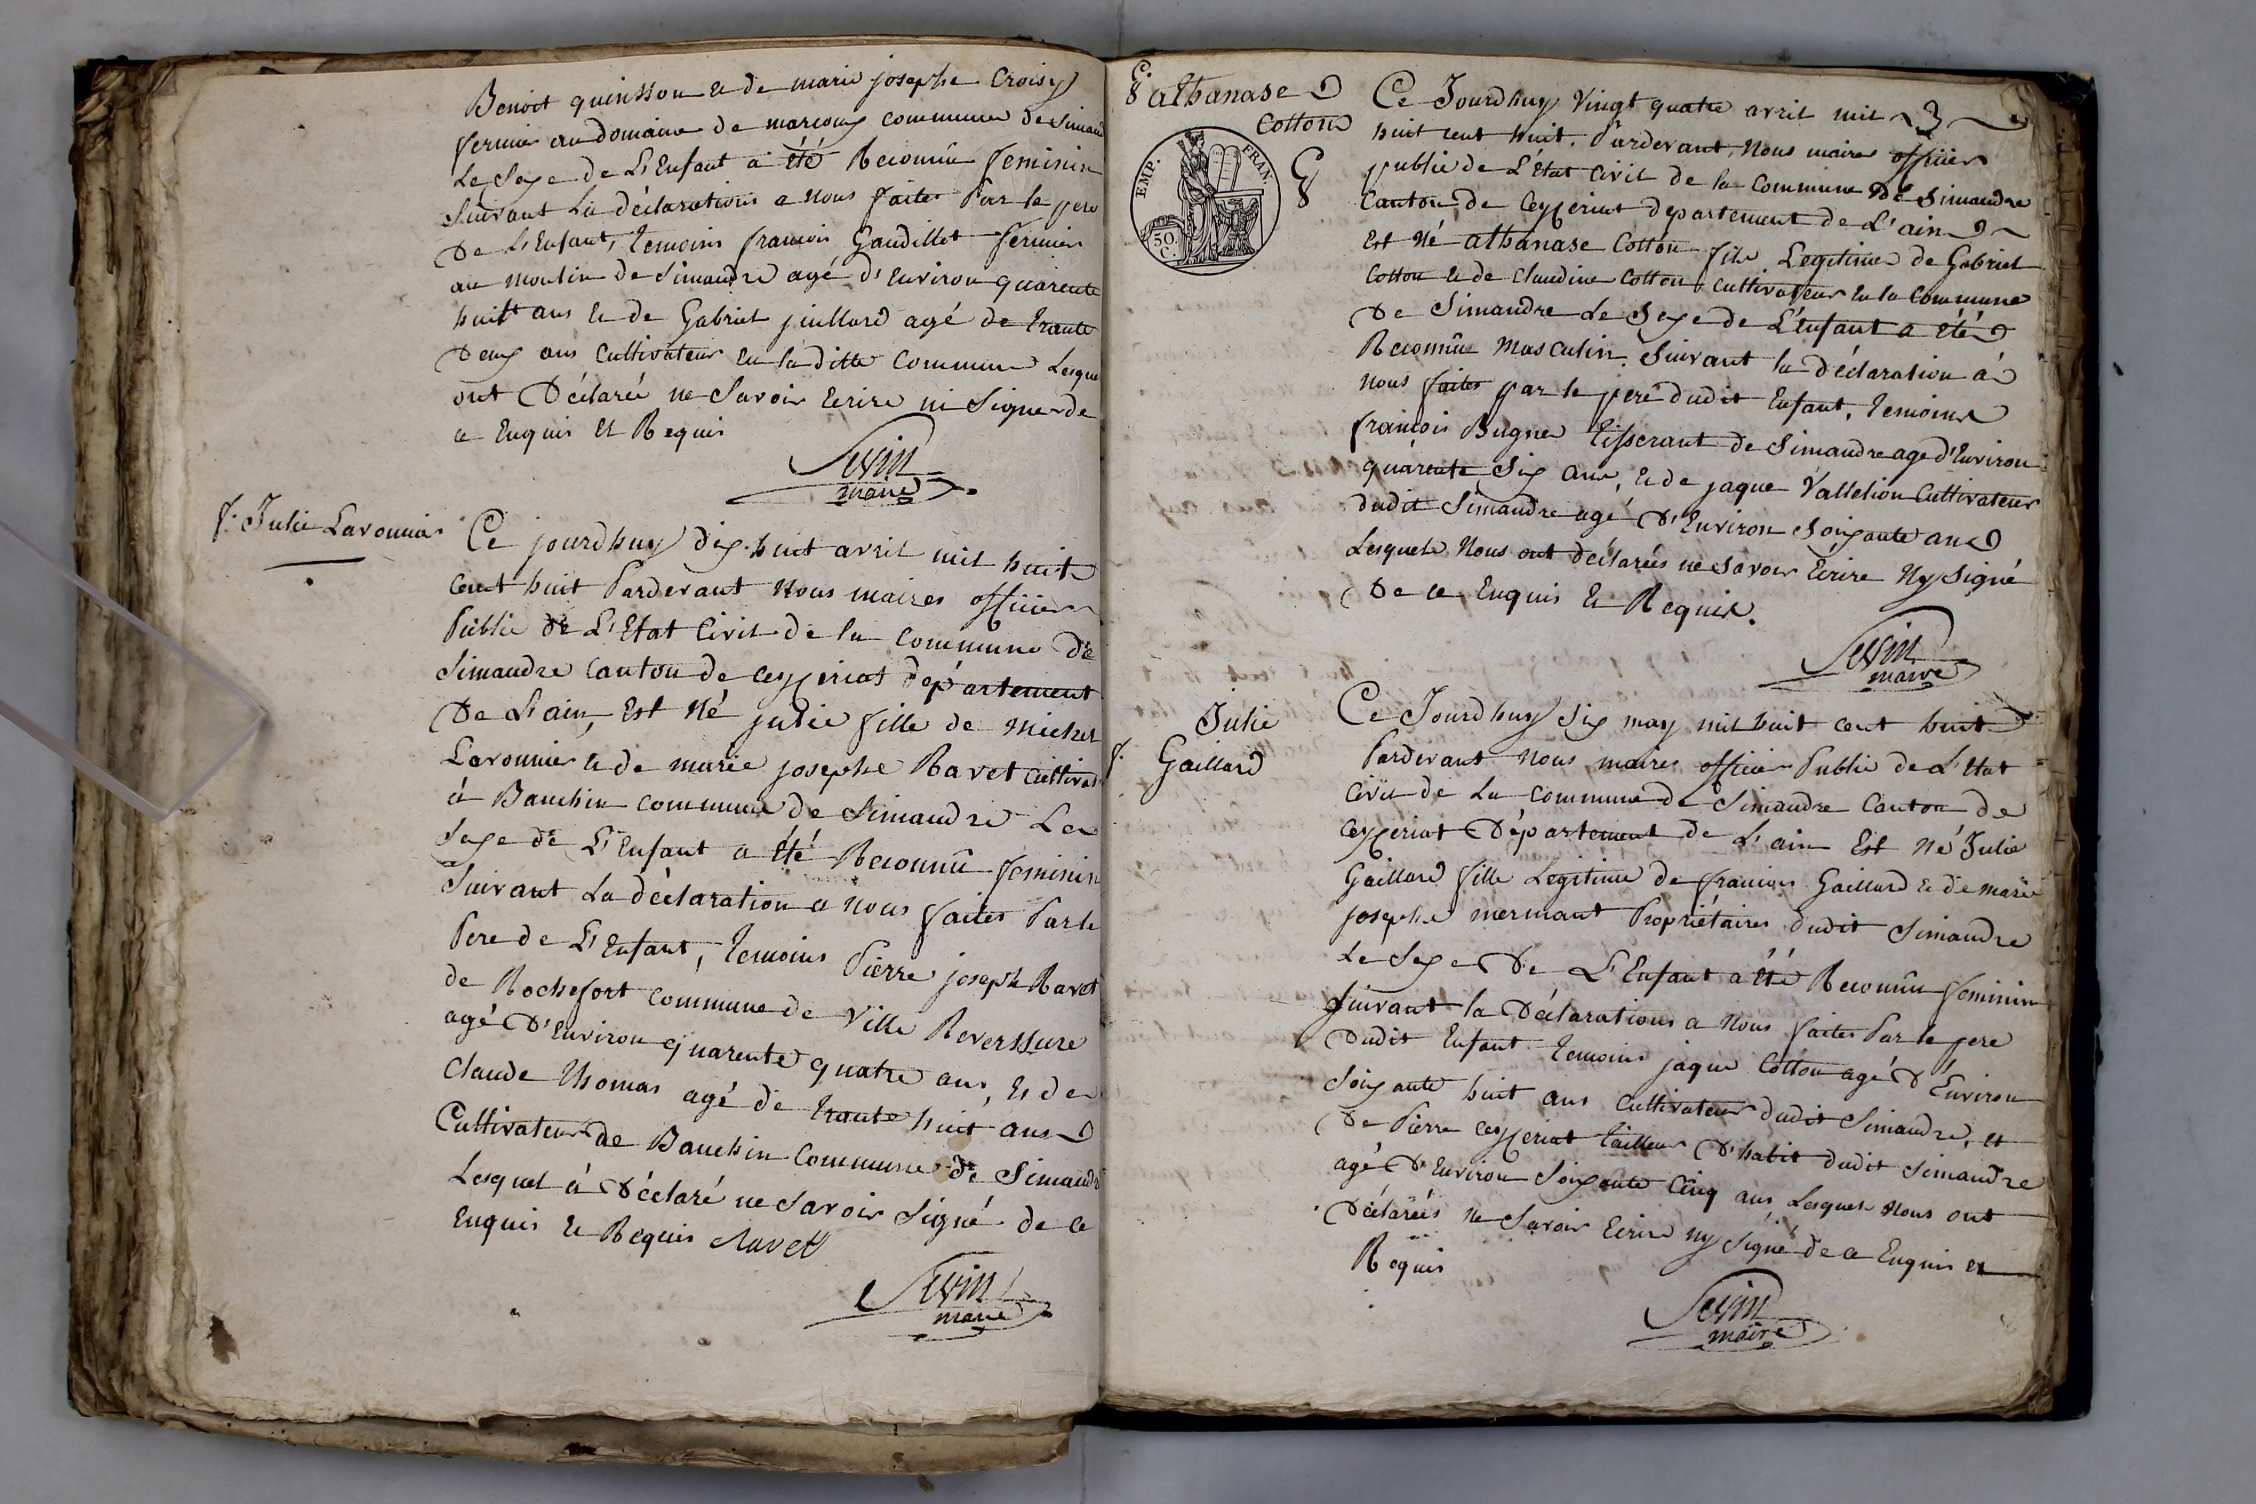 Benoit quinsson & de marie josephe Croisy
fermier au domaine de marcoux commune de Simand
Le Sexe de L'Enfant a été Reconnû feminin
Suivant La déclarations a nous faites Par le pere
De L'Enfant, temoins francois Gaudillet fermier
au moulin de Simandre agé d'Environ quarente
huitt ans & de Gabriel juillard agé de trante
Deux ans Cultivateur En la ditte Commune Lesque
ont Déclaréé ne Savoir Ecrire ni Signer de
ce Enquis Et Requis
Sevin
maire
f. Julie Lavonnier
Ce jourdhuy dix huit avril mil huit
cent huit Pardevant Nous maires officier
Public de L'Etat Civil de la Commune de
Simandre Canton de ceyzeriat département
De L'ain, Est Né julie fille de michel
Lavonnier & de marie josephe Ravet Cultivat
à Bauchin commune de Simandre Le
Sexe de L'Enfant a été Reconnû feminin
Suivant La déclaration a nous faites Par le
Pere de L'Enfant, temoins Pierre joseph Ravet
de Rochefort Commune de Ville Reverssure
agé D'Environ quarente quatre ans, Et de
Claude thomas agé de trante huit ans
Cultivateur de Bauchin Commune de Simandr
Lesquel à Déclaré ne Savoir Signé de ce
Enquis & Requis Ravet
Sevin
maire
G. athanase
Cotton
EMP. FRAN.
50 C.
Ce Jourdhuy Vingt quatre avril mil
huit cent huit. Pardevant Nous maires officier
public de L'Etat Civil de la Commune de Simandre
Canton de Ceyzeriat departement de L'ain
Est Né athanase Cotton fils Legitime de Gabriel
Cotton & de Claudine Cotton Cultivateur En la Commune
De Simandre Le Sexe de L'Enfant a été
Reconnûe Masculin. Suivant la déclaration à
nous faites par le pere dudit Enfant, temoins
francois Bugne tisserant de Simandre age d'Environ
quarente Six ans, & de jaque Vallelion Cultivateur
dudit Simandre agé D'Environ Soixante ans
Lesquels Nous ont déclarées ne Savoir Ecrire Ny Signé
De ce Enquis Et Requis.
Sevin
maire
Julie
f. Gaillard
Ce Jourdhuy Six may mil huit cent huit
Pardevant Nous maires officier Public de L'Etat
Civil de La Commune de Simandre Canton de
ceyzeriat Département de L'ain Est Né Julie
Gaillard fille Legitime de francois Gaillard & de marie
josephe mermant Propriétaires dudit Simandre
Le Sexe De L'Enfant a été Reconnûe feminin
Suivant la Déclarations a Nous faites Par le pere
dudit Enfant temoins jaque Cotton agé D'Environ
Soixante huit ans Cultivateur dudit Simandre, Et
De Pierre ceyzeriat tailleur D'habit dudit Simandre
agé D'Environ Soixante Cinq ans, Lesquels Nous ont
Déclaréés Ne Savoir Ecrire ny Signé de ce Enquis et
Requis
Sevin
maire